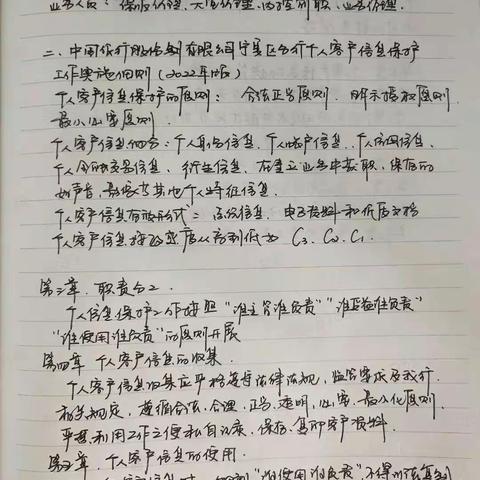 业务人员：
二、中国银行股份有限公司宁夏区分行个人客户信息保护
工作实施细则（2022年版）
个人客户信息保护的原则：合法正当原则、明示授权原则
最小必要原则
个人客户信息包含：个人身份信息、个人账户信息、个人信用信息、
个人金融交易信息、衍生信息、在建立业务中获取、保存的
如声音、影像等其他个人特征信息
个人客户信息存放形式：系统信息、电子资料和纸质文档
个人客户信息按敏感度从高到低为 C3、C2、C1
第二章、职责分工
个人信息保护工作按照“谁主管谁负责”“谁受益谁负责”
“谁使用谁负责”的原则开展
第四章 个人客户信息的收集
个人客户信息收集应严格遵守法律法规，监管要求及我行
相关规定，遵循合法、合理、正当、透明，必要、最小化原则
严禁利用工作之便私自记录、保存、复印客户资料
第五章、个人客户信息的使用
“谁使用谁负责”不得